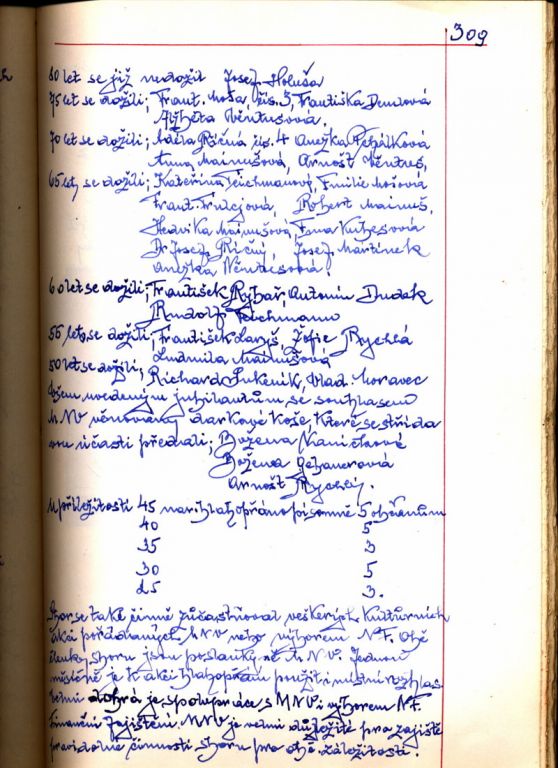 309
80 let se již nedožil Josef Holuša
75 let se dožili; Frant. Moša, čís. 3, Františka Demlová
Alžběta Věntusová.
70 let se dožili; Adéla Říčná čís. 4 Anežka Řehálková
Anna Mainušová, Arnošt Věntus,
65 let, se dožili; Kateřina Teichmanová, Emilie Mošová
Frant. Robert Mainuš,
Hedvika Mainušová, Ema
Dr Josef Říčný, Josef Martínek
Anežka
60 let se dožili; František Rybář, Antonín Dudek
Rudolf Teichmann
55 let, se dožili; František Laryš, Žofie Rychlá
Ludmila Mainušová
50 let se dožili; Richard Lukeník, Vlad. Moravec
Všem uvedeným jubilantům se souhlasem
MNV věnovány dárkové koše, které se střída
vou účastí předali; Božena
Božena Gebauerová
Arnošt Rychlý.
U příležitosti 45 nar. blahopřáno písemně 5 občanům
40 5
35 3
30 5
25 3.
Sbor se také činně zúčastňoval veškerých kulturních
akcí pořádaných MNV nebo výborem N.F. Obě
členky sboru jsou poslankyně MNV. Jednou
měsíčně je k akci blahopřání použit místní rozhlas.
Velmi dobrá je spolupráce s MNV i výborem N.F.
Finanční zajištění MNV je velmi důležité pro zajiště
pravidelné činnosti sboru pro obě záležitosti.